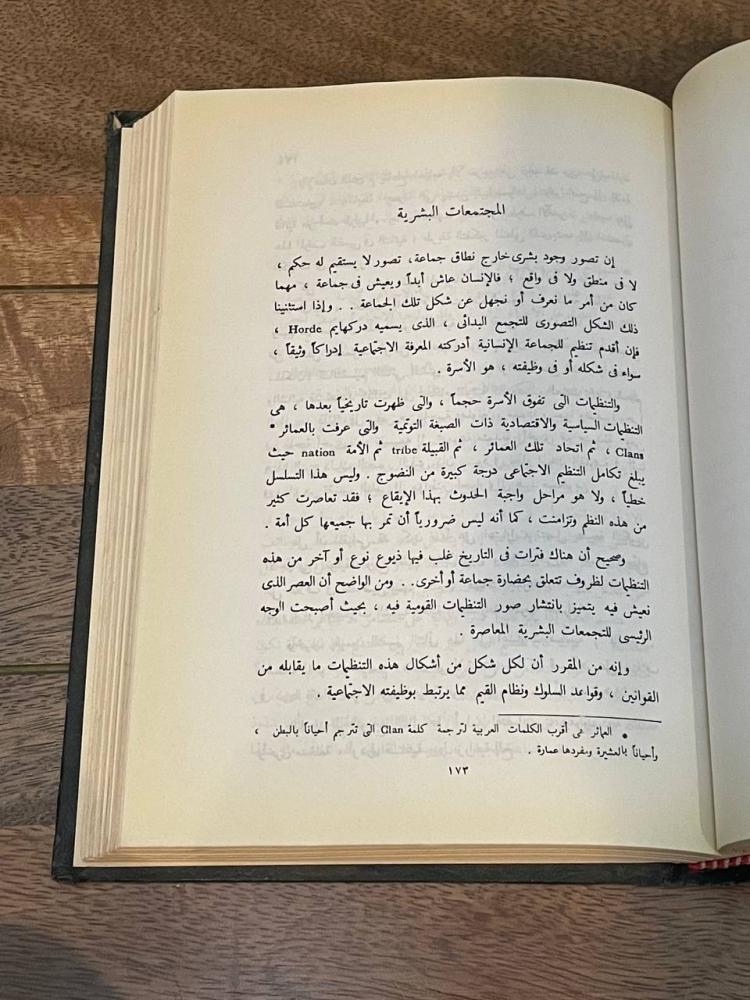 المجتمعات البشرية
إن تصور وجود بشرى خارج نطاق جماعة، تصور لا يستقيم له حكم ،
لا فى منطق ولا فى واقع ؛ فالإنسان عاش أبداً ويعيش فى جماعة ، مهما
كان من أمر ما نعرف أو نجهل عن شكل تلك الجماعة . . وإذا استثنينا
ذلك الشكل التصورى للتجمع البدائى ، الذى يسميه دركهايم Horde ،
فإن أقدم تنظيم للجماعة الإنسانية أدركته المعرفة الاجتماعية إدراكاً وثيقاً ،
سواء فى شكله أو فى وظيفته ، هو الأسرة .
والتنظيمات التى تفوق الأسرة حجماً ، والتى ظهرت تاريخياً بعدها ، هى
التنظيمات السياسية والاقتصادية ذات الصبغة التوتمية والتى عرفت بالعمائر *
Clans ، ثم اتحاد تلك العمائر ، ثم القبيلة tribe ثم الأمة nation حيث
يبلغ تكامل التنظيم الاجتماعى درجة كبيرة من النضوج . وليس هذا التسلسل
خطياً ، ولا هو مراحل واجبة الحدوث بهذا الإيقاع ؛ فقد تعاصرت كثير
من هذه النظم وتزامنت ، كما أنه ليس ضرورياً أن تمر بها جميعها كل أمة .
وصحيح أن هناك فترات فى التاريخ غلب فيها ذيوع نوع أو آخر من هذه
التنظيمات لظروف تتعلق بحضارة جماعة أو أخرى. . ومن الواضح أن العصر الذى
نعيش فيه يتميز بانتشار صور التنظيمات القومية فيه ، بحيث أصبحت الوجه
الرئيسى للتجمعات البشرية المعاصرة .
وإنه من المقرر أن لكل شكل من أشكال هذه التنظيمات ما يقابله من
القوانين ، وقواعد السلوك ونظام القيم مما يرتبط بوظيفته الاجتماعية .
• العمائر هى أقرب الكلمات العربية لترجمة كلمة Clan التى تترجم أحياناً بالبطن ،
وأحياناً بالعشيرة ومفردها عمارة .
١٧٣